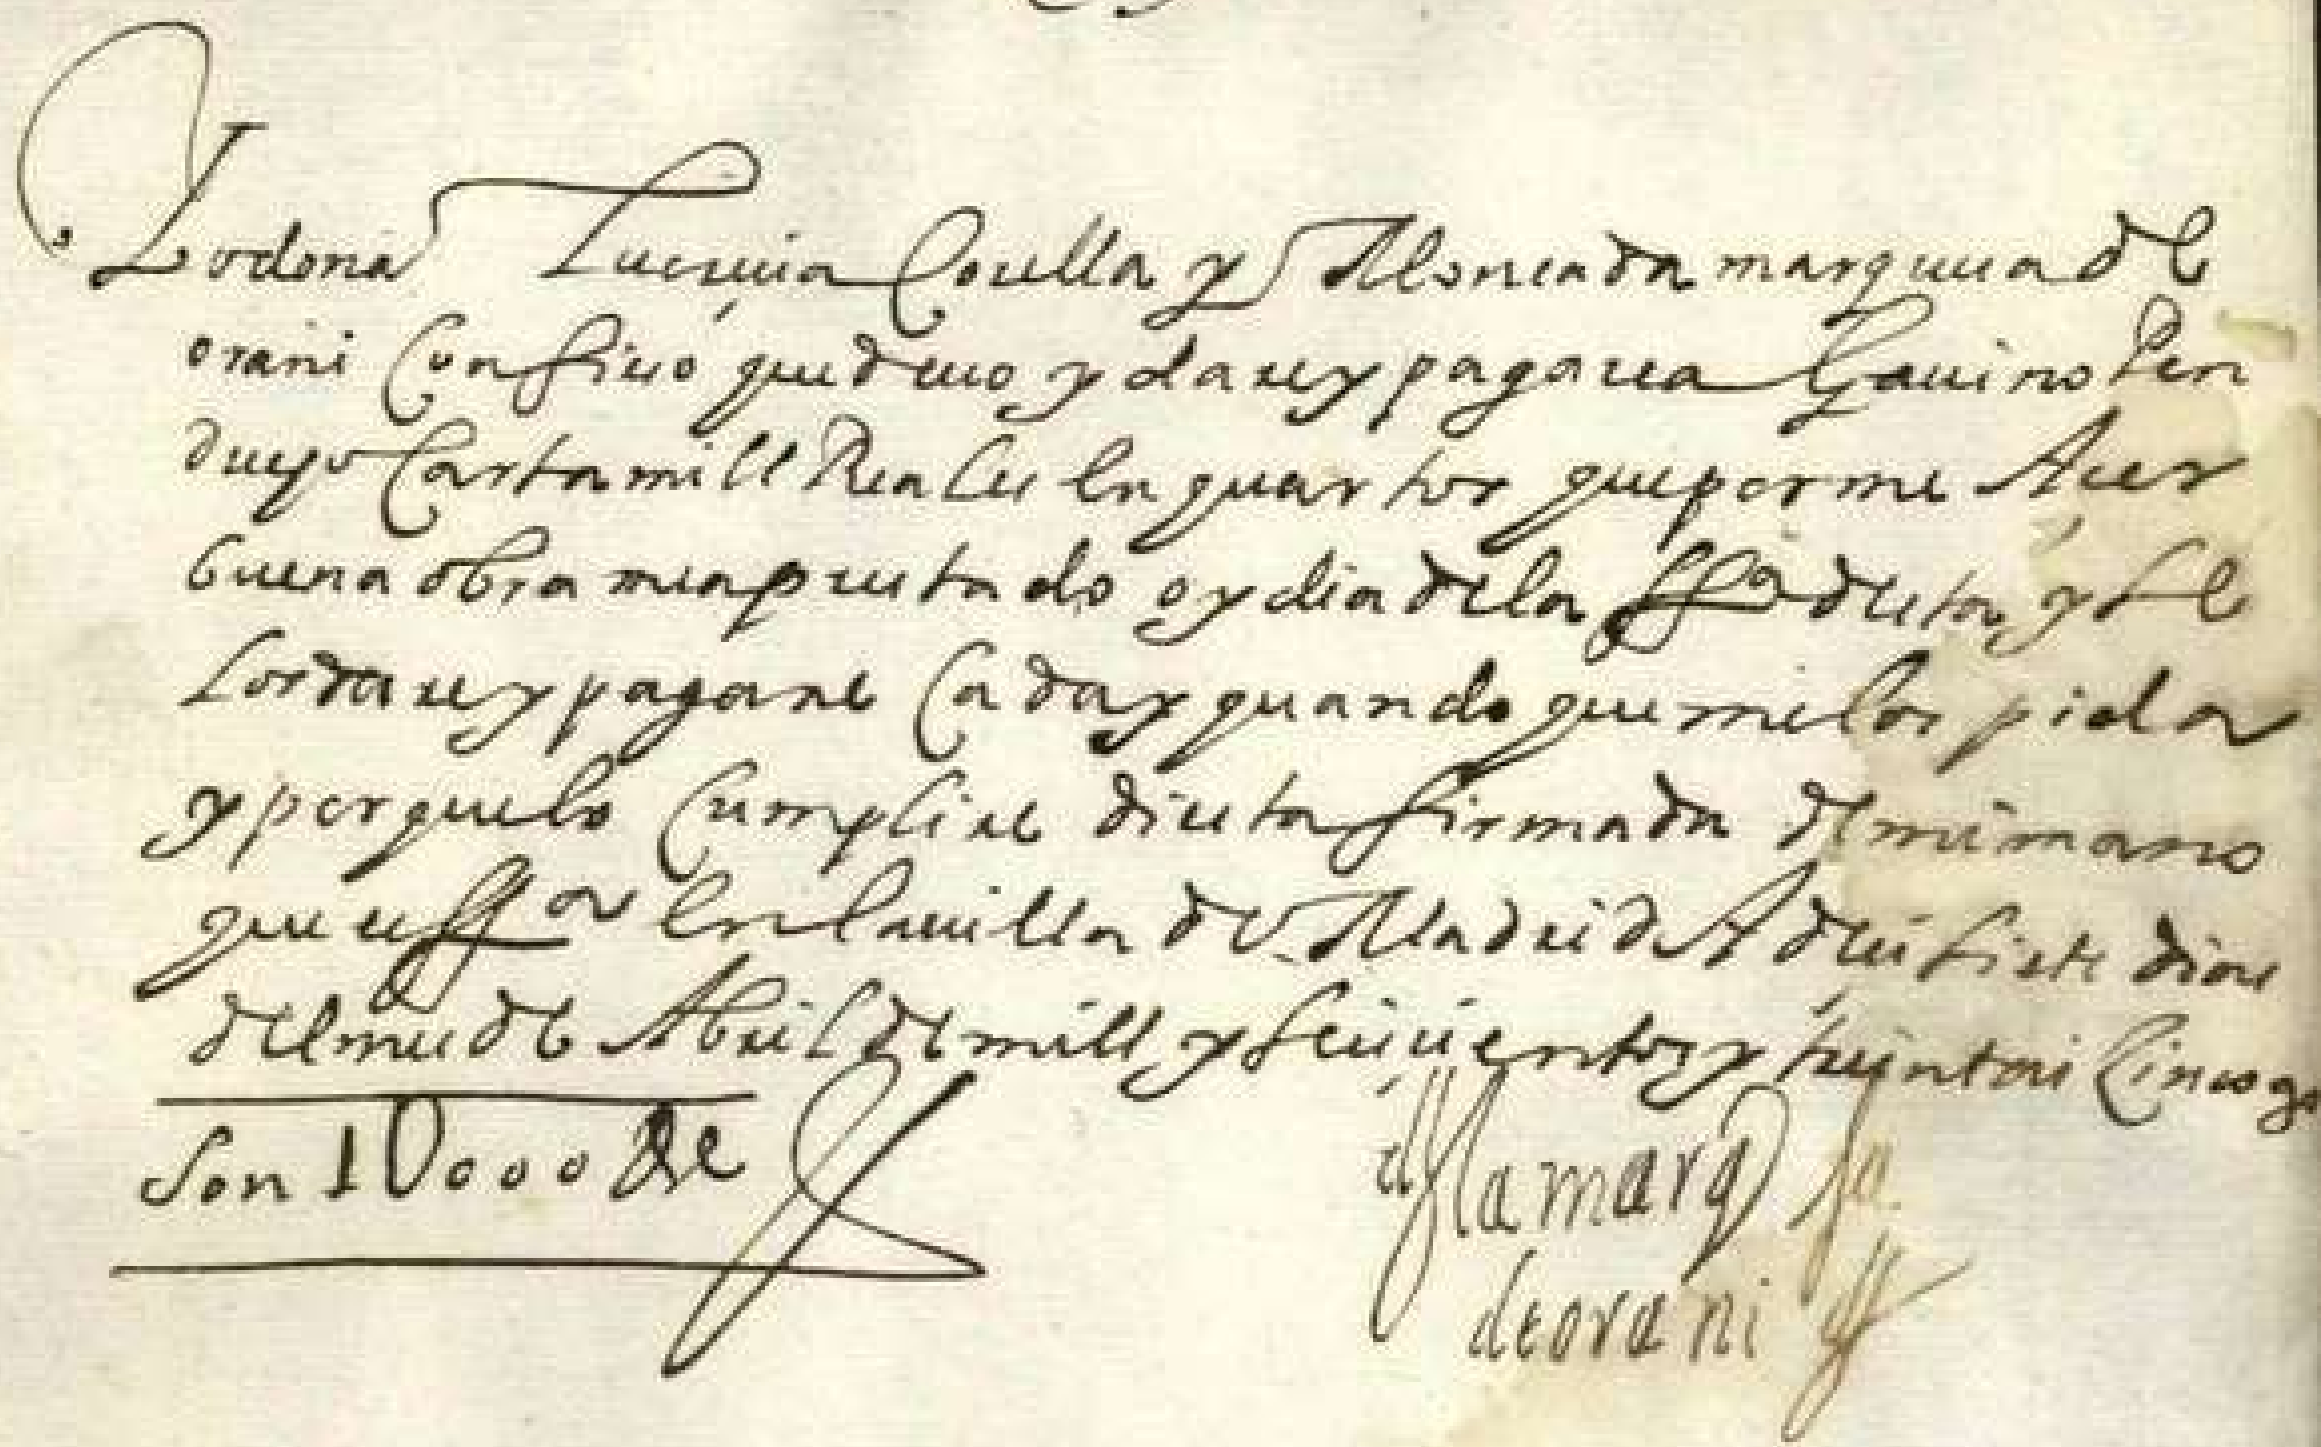 Yo dona Lucrecia Corella y Moncada marquesa de
orani Confieso que deuo y dare y pagare a Gauino Pen
duço Carta mill Reales en quartos que por me Acer
buena obra me a prestado oy dia de la ffa desta y se
los dare y pagare Cada y quando que me los pida
y porque lo Cumplire di esta firmada de mi mano
que es ffa en la uilla de Madrid A dieisiete dias
del mes de Abril de mill y seiscientos y treinta i Cinco
Son 1U000 Rs
la marqsa
de orani